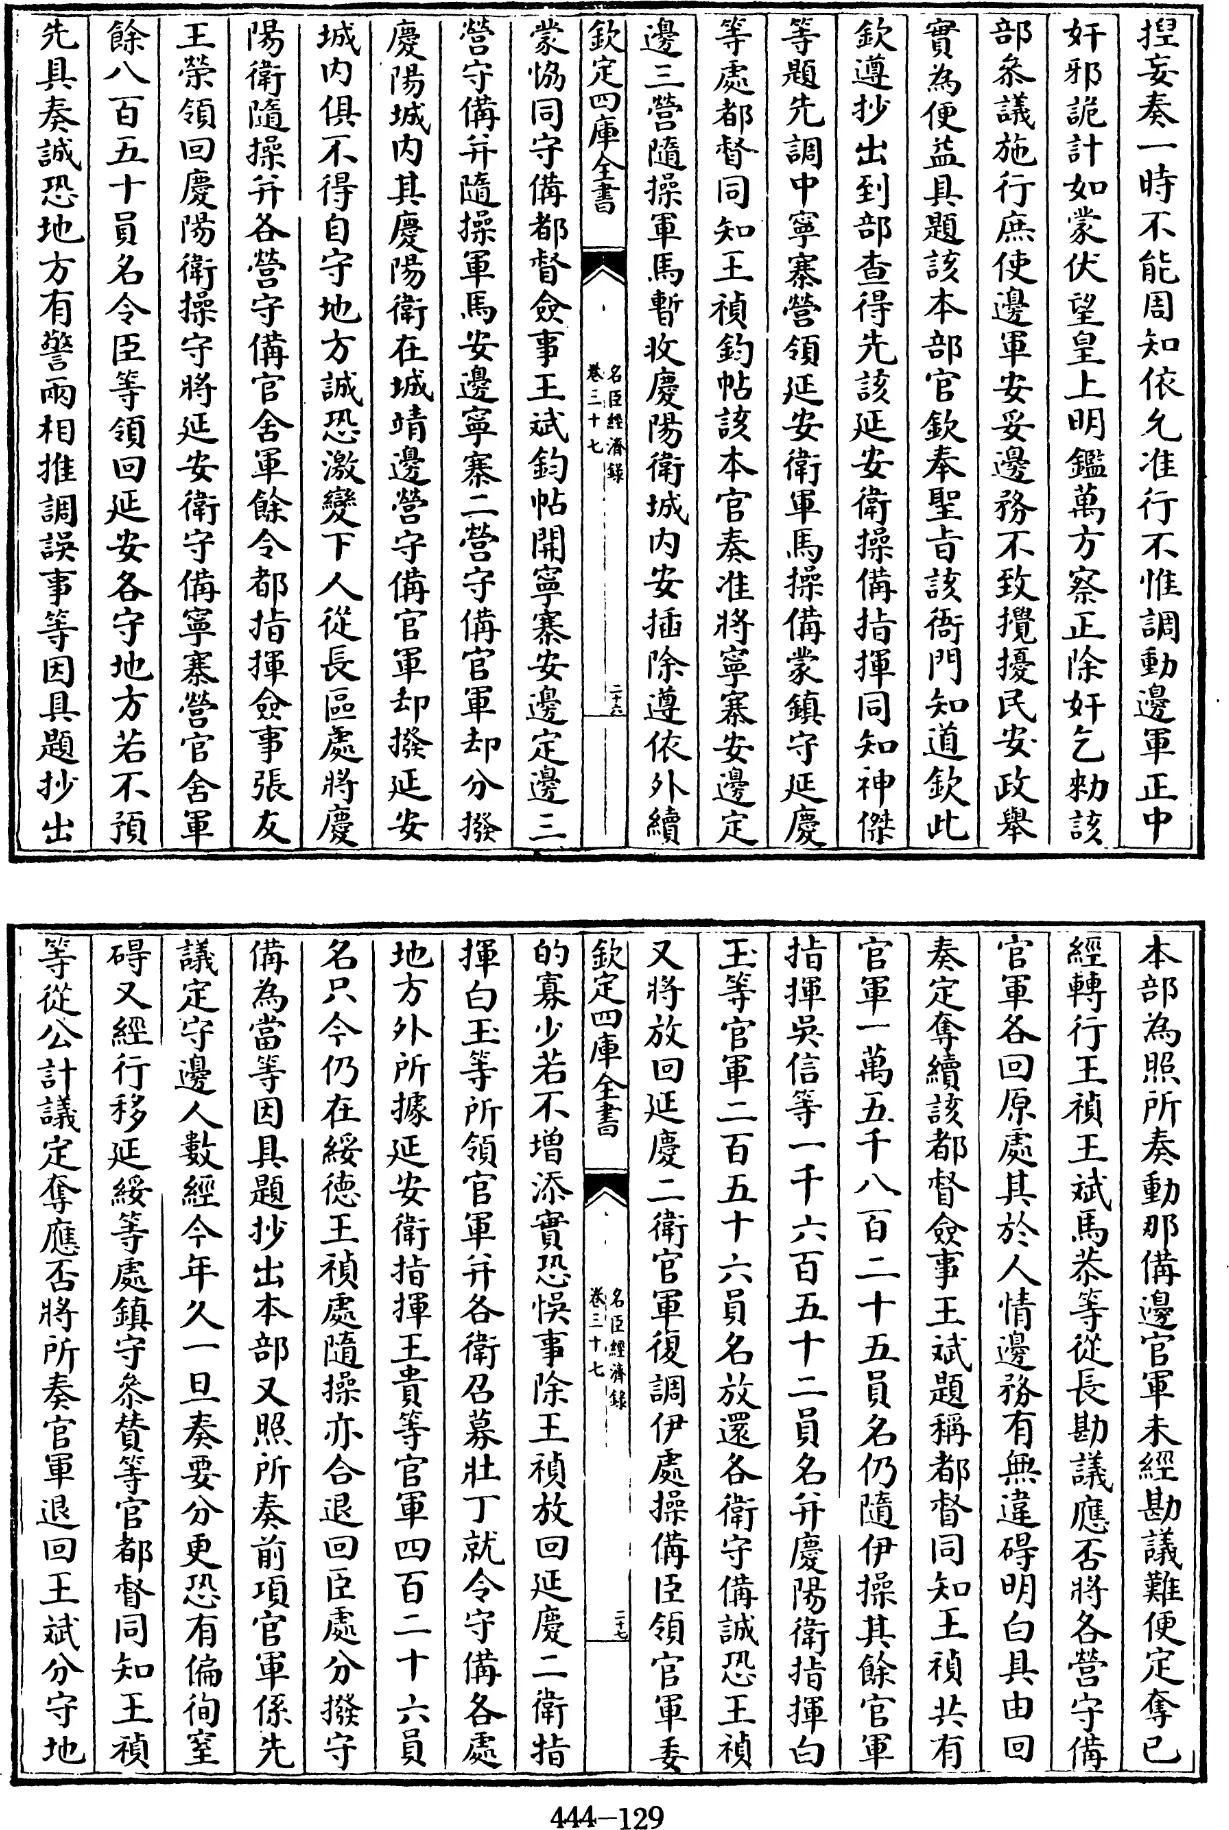 揑妄奏一時不能周知依允准行不惟調動邊軍正中
奸邪詭計如蒙伏望皇上明鑑萬方察正除奸乞勑該
部叅議施行庶使邊軍安妥邊務不致攪擾民安政舉
實為便益具題該本部官欽奉聖旨該衙門知道欽此
欽遵抄出到部查得先該延安衛操備指揮同知神傑
等題先調中寧寨營領延安衛軍馬操備蒙鎮守延慶
等處都督同知王禎鈞帖該本官奏准將寧寨安邊定
邊三營隨操軍馬暫收慶陽衛城内安插除遵依外續
欽定四庫全書
名臣經濟録
卷三十七
二十六
蒙恊同守備都督僉事王斌鈞帖開寧寨安邊定邊三
營守備并隨操軍馬安邊寧寨二營守備官軍却分撥
慶陽城内其慶陽衛在城靖邊營守備官軍却撥延安
城内俱不得自守地方誠恐激變下人從長區處將慶
陽衛隨操并各營守備官舍軍餘令都指揮僉事張友
王榮領回慶陽衛操守將延安衛守備寧寨營官舍軍
餘八百五十員名令臣等領回延安各守地方若不預
先具奏誠恐地方有警兩相推調誤事等因具題抄出
本部為照所奏動那備邊官軍未經勘議難便定奪已
經轉行王禎王斌馬恭等從長勘議應否將各營守備
官軍各回原處其於人情邊務有無違碍明白具由回
奏定奪續該都督僉事王斌題稱都督同知王禎共有
官軍一萬五千八百二十五員名仍隨伊操其餘官軍
指揮吳信等一千六百五十二員名并慶陽衛指揮白
玉等官軍二百五十六員名放還各衛守備誠恐王禎
又將放回延慶二衛官軍復調伊處操備臣領官軍委
欽定四庫全書
名臣經濟録
卷三十七
二十七
的寡少若不增添實恐悞事除王禎放回延慶二衛指
揮白玉等所領官軍并各衛召募壯丁就令守備各處
地方外所據延安衛指揮王貴等官軍四百二十六員
名只今仍在綏德王禎處隨操亦合退回臣處分撥守
備為當等因具題抄出本部又照所奏前項官軍係先
議定守邊人數經今年久一旦奏要分更恐有偏徇窒
碍又經行移延綏等處鎮守叅賛等官都督同知王禎
等從公計議定奪應否將所奏官軍退回王斌分守地
444-129